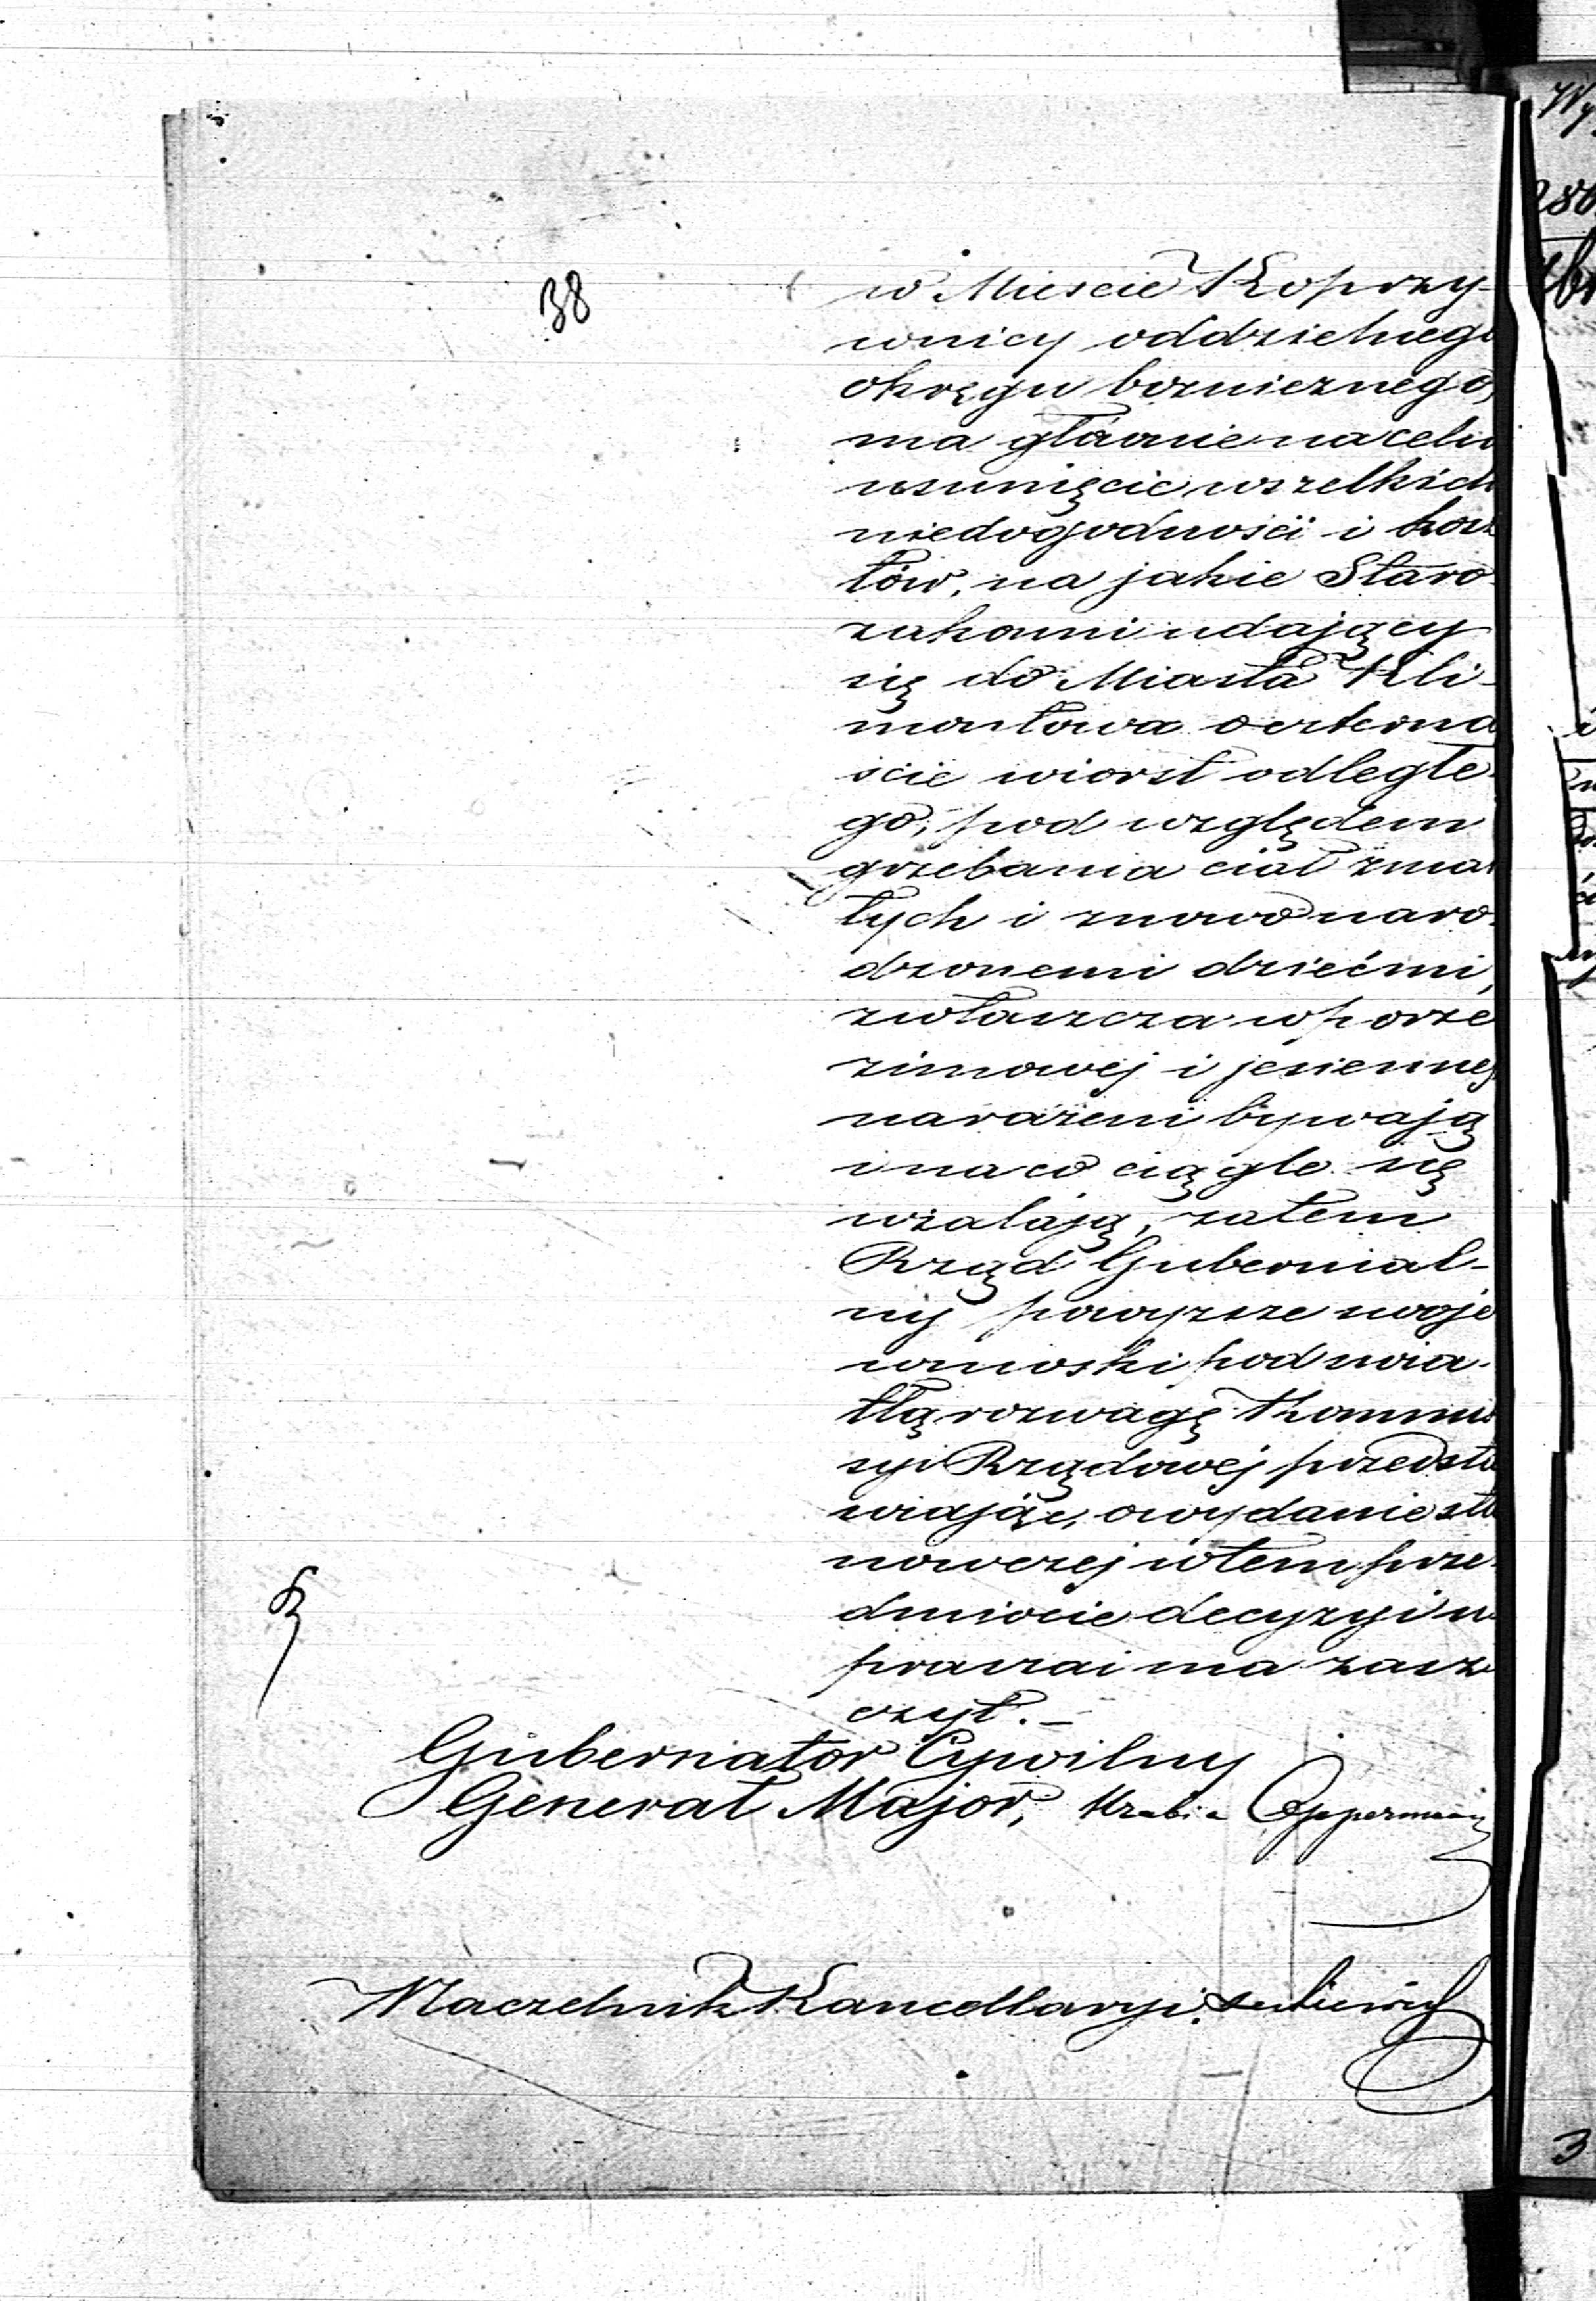 38
w Mieście Koprzy-
wnicy oddzielnego
okręgu bożniczego,
ma głównie na celu
usunięcie wszelkich
niedogodności i kosz
tów, na jakie Staro
zakonni udający
się do Miasta Kli-
montowa o czterna
ście wiorst odległe
go, pod względem
grzebania ciał zmar
łych i z nowo naro
dzonemi dziećmi,
zwłaszcza w porze
zimowej i jesiennej
narażeni bywają
i na co ciągle się
użalają, zatem
Rząd Gubernial-
ny powyższe swoje
wnioski pod świa-
tłą rozwagę Kommis
syi Rządowej przedsta
wiając, o wydanie sta
nowczej w tem prze
dmiocie decyzyi u
praszai ma zasz
czyt. –
Gubernator Cywilny
Generał Major, Hrabia Oppermann
Naczelnik Kancellaryi